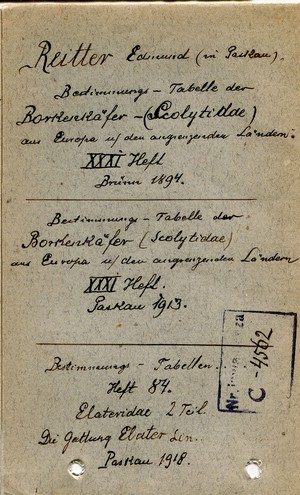 Reitter Edmund (in Paskau).
Bestimmungs - Tabelle der
Borkenkäfer - (Scolytidae)
aus Europa u/ den angrenzenden Ländern.
XXXI Heft
Brünn 1894.
Bestimmungs - Tabelle der
Borkenkäfer (Scolytidae)
aus Europa u/ den angrenzenden Ländern
XXXI Heft.
Paskau 1913.
Nr.
C-4562
Bestimmungs - Tabellen.
Heft 87.
Elateridae 2 Teil.
Die Gattung Elater Lin.
Paskau 1918.